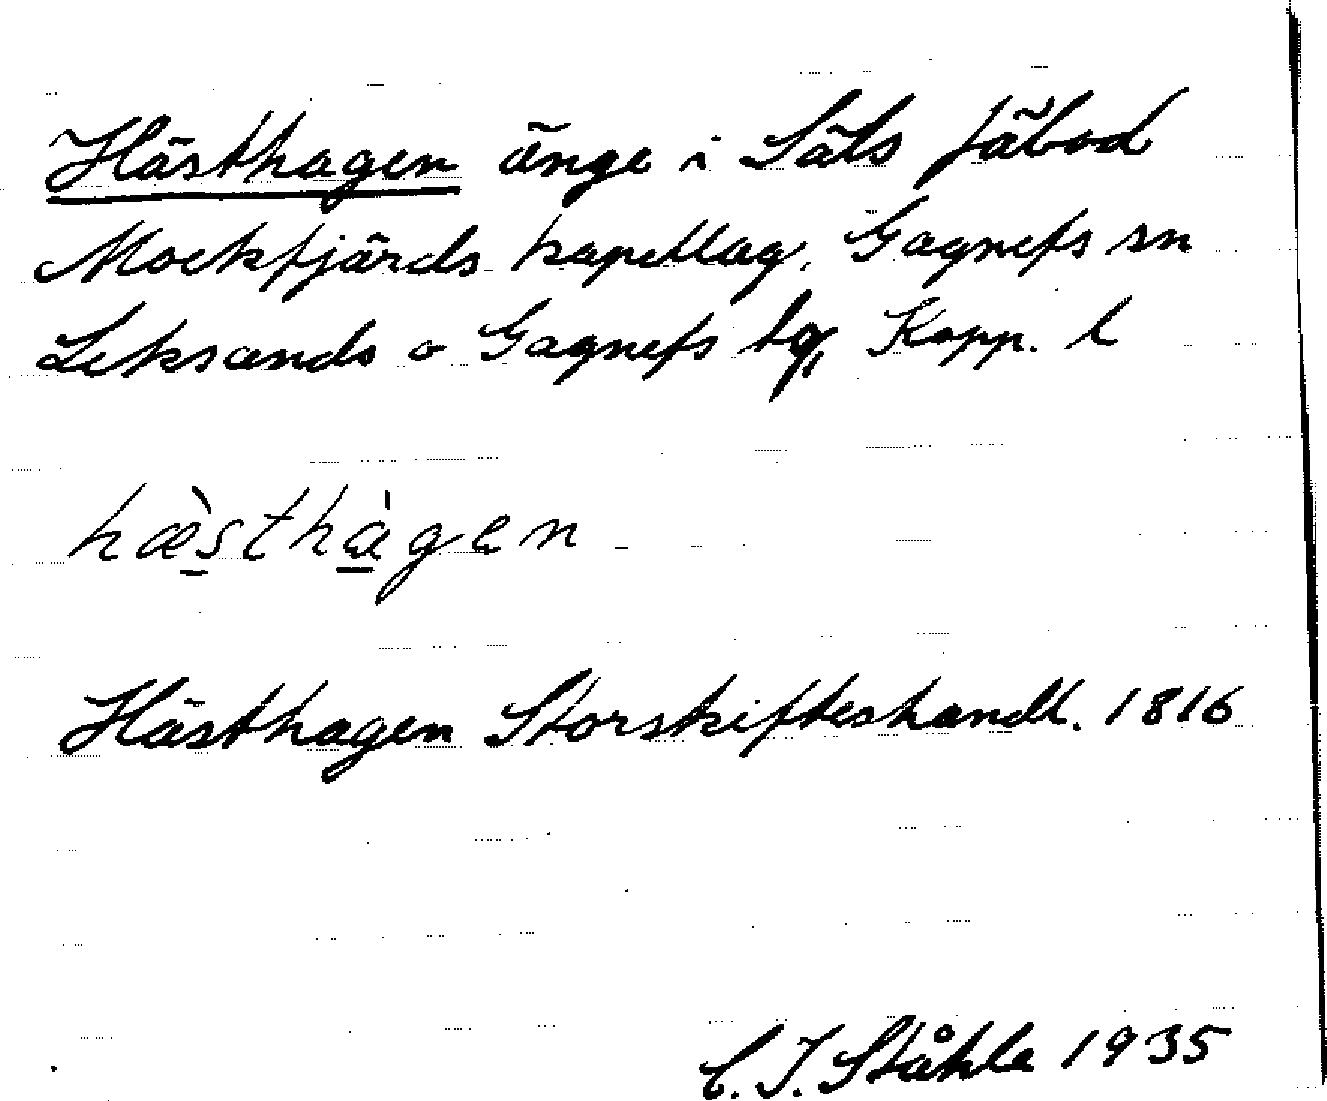 Hästhagen änge i Säls fäbod
Mockfjärds kapellag, Gagnefs sn
Leksands o Gagnefs tg, Kopp. l
hæ̀sthàgen
Hästhagen Storskifteshandl. 1816
C. I. Ståhle 1935